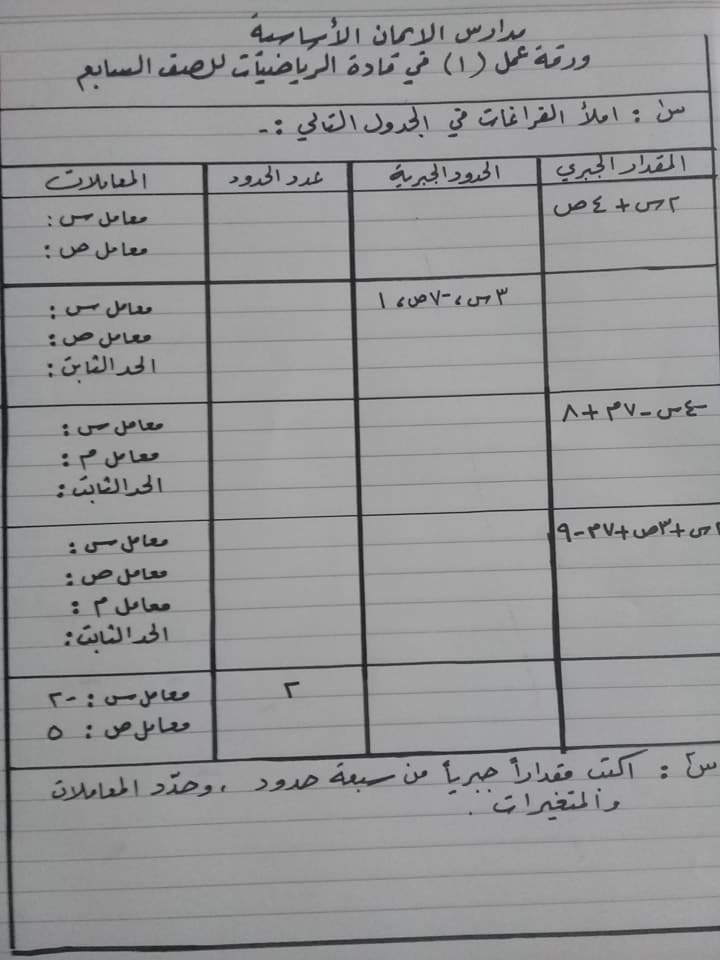 مدارس الايمان الأساسية
ورقة عمل (١) في مادة الرياضيّات للصف السابع
س١ : املأ الفراغات في الجدول التالي :-
المقدار الجبري الحدود الجبرية عدد الحدود المعاملات
٢س + ٤ص معامل س :
معامل ص :
٣س ، -٧ص ، ١ معامل س :
معامل ص :
الحد الثابت :
-٤س - ٧م + ٨ معامل س :
معامل م :
الحد الثابت :
٢س + ٣ص + ٧م - ٩ معامل س :
معامل ص :
معامل م :
الحد الثابت :
٢ معامل س : -٢
معامل ص : ٥
س٢ : اكتب مقداراً جبرياً من سبعة حدود ، وحدّد المعاملات
والمتغيرات .